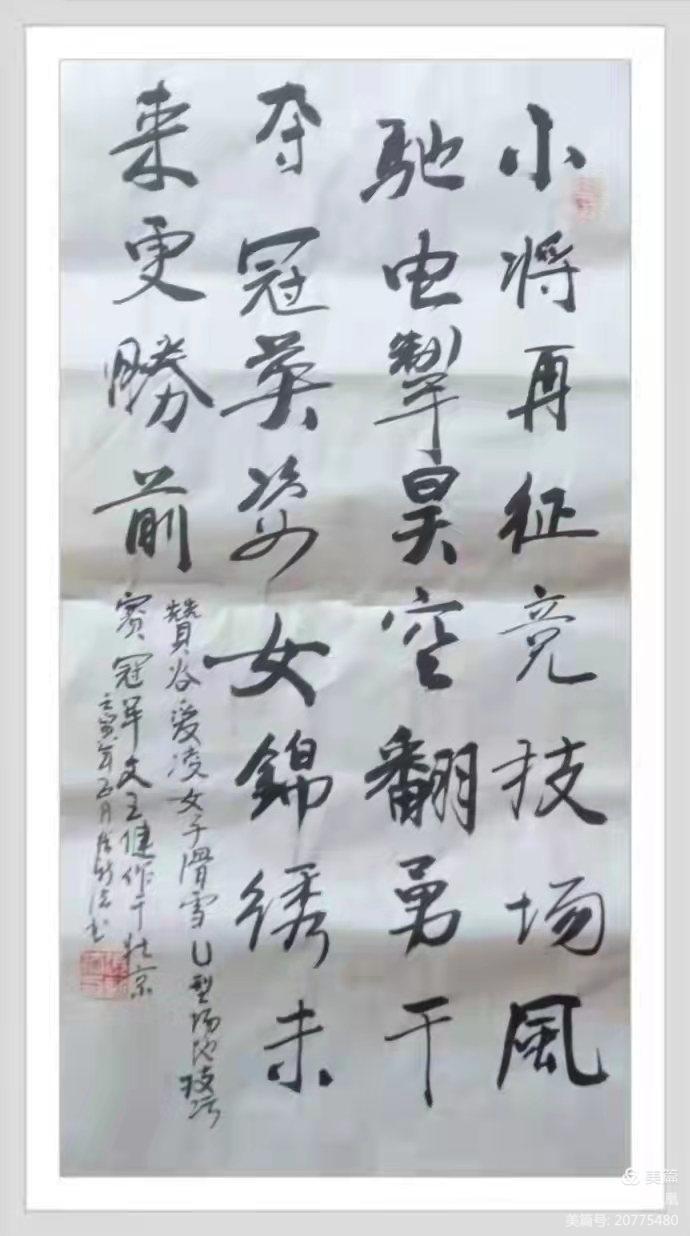 小将再征竞技场風
馳电掣昊空翻勇干
夺冠英姿女錦绣未
来更勝前
贊谷爱凌女子滑雪U型场地技巧
赛冠军文王健作于北京
壬寅年正月 书
美篇
凰
美篇号: 20775480